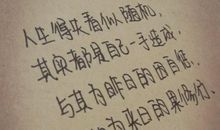 人生得失看似随机，
其实都是自己一手造成，
与其为昨日的因自恼，
为来日的果伤份、